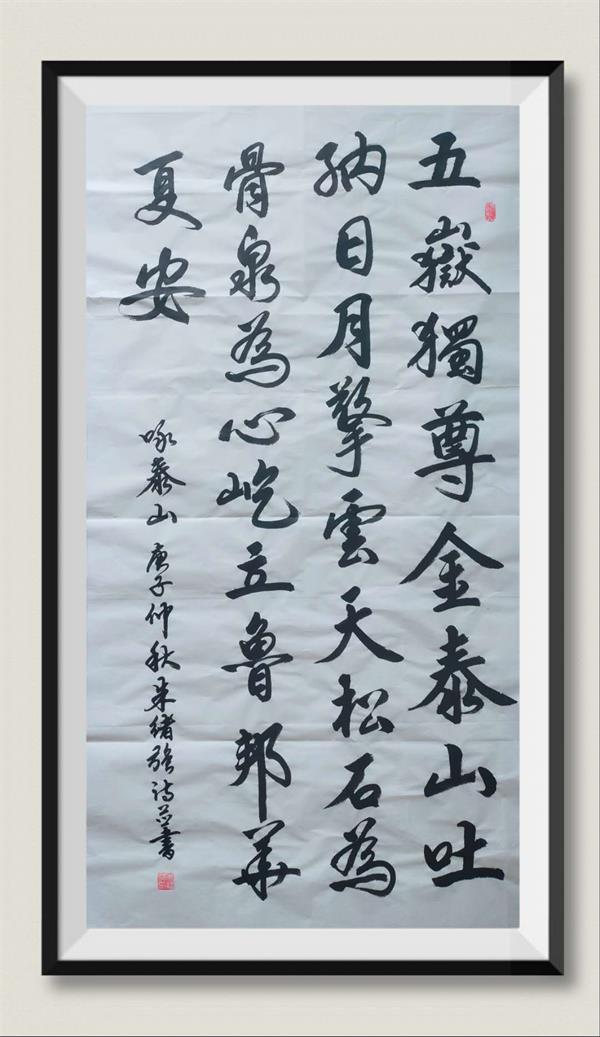 五嶽獨尊金泰山吐
納日月擎雲天松石為
骨泉為心屹立魯邦華
夏安
咏泰山 庚子仲秋朱緒強詩并書